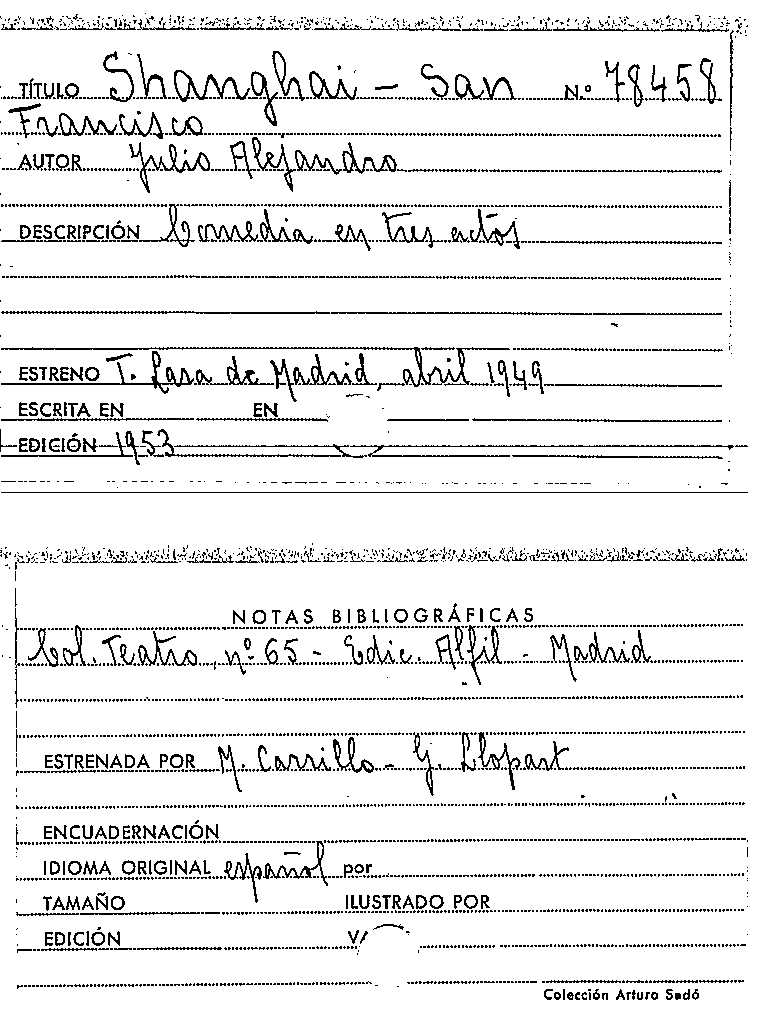 TÍTULO Shanghai - San N.º 78458
Francisco
AUTOR Julio Alejandro
DESCRIPCIÓN Comedia en tres actos
ESTRENO T. Lara de Madrid, abril 1949
ESCRITA EN EN
EDICIÓN 1953
NOTAS BIBLIOGRÁFICAS
Col. Teatro, nº 65 - Edic. Alfil - Madrid
ESTRENADA POR M. Carrillo - G. Llopart
ENCUADERNACIÓN
IDIOMA ORIGINAL español por
TAMAÑO ILUSTRADO POR
EDICIÓN
Colección Arturo Sedó